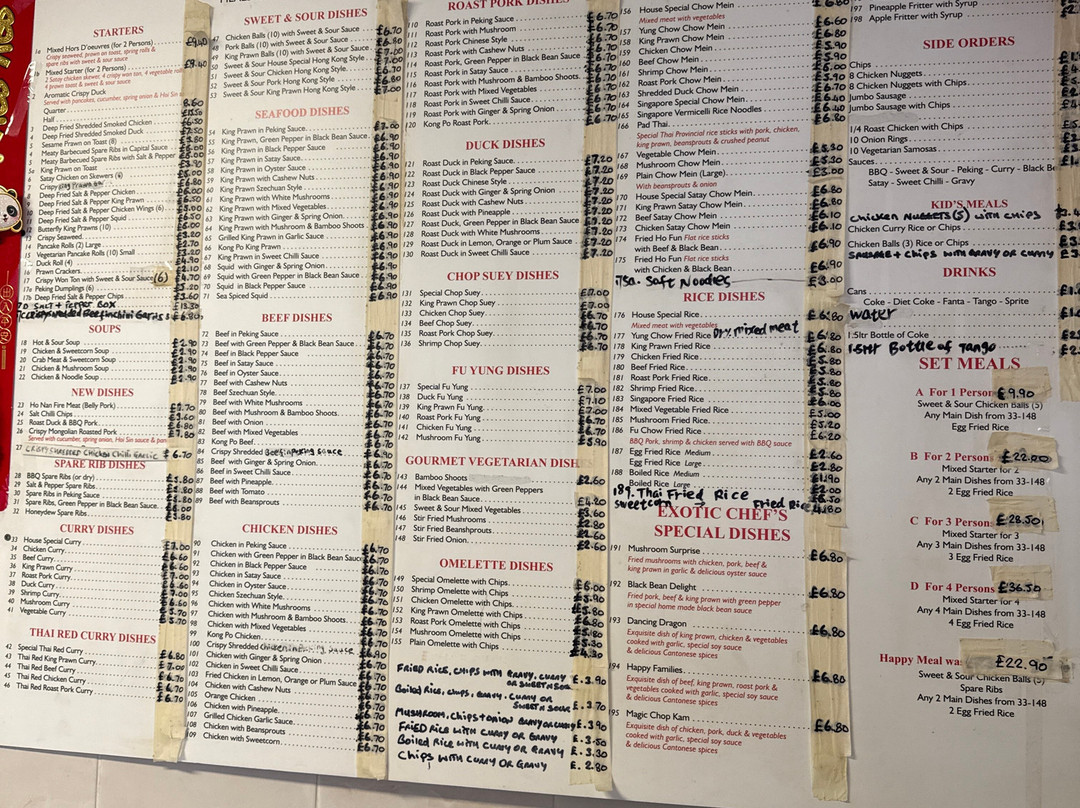 STARTERS
1a Mixed Hors D'oeuvres (for 2 Persons) £9.40
Crispy seaweed, prawn on toast, spring rolls &
spare ribs with sweet & sour sauce
Mixed Starter (for 2 Persons) £9.40
2 Satay chicken skewer, 4 crispy won ton, 4 vegetable rolls
4 prawn toast & sweet & sour sauce
2 Aromatic Crispy Duck
Served with pancakes, cucumber, spring onion & Hoi Sin
Quarter 8.60
Half
3 Deep Fried Shredded Smoked Chicken
Deep Fried Shredded Smoked Duck
Sesame Prawn on Toast (8)
4 Meaty Barbecued Spare Ribs in Capital Sauce
Meaty Barbecued Spare Ribs with Salt & Pepper
5a King Prawn on Toast
6 Satay Chicken on Skewers (4)
7 Crispy King Prawn
8 Deep Fried Salt & Pepper Chicken
9 Deep Fried Salt & Pepper King Prawn
10 Deep Fried Salt & Pepper Chicken Wings (6)
Deep Fried Salt & Pepper Squid
Butterfly King Prawns (10)
13 Crispy Seaweed
14 Pancake Rolls (2) Large
15 Vegetarian Pancake Rolls (10) Small
Duck Roll (4)
16 Prawn Crackers
17 Crispy Won Ton with Sweet & Sour Sauce (6)
17a Peking Dumplings (6)
17b Deep Fried Salt & Pepper Chips
SALT + PEPPER BOX
SOUPS
18 Hot & Sour Soup £2.90
19 Chicken & Sweetcorn Soup £2.90
20 Crab Meat & Sweetcorn Soup £2.90
21 Chicken & Mushroom Soup £2.90
22 Chicken & Noodle Soup £2.90
NEW DISHES
23 Ho Nan Fire Meat (Belly Pork)
24 Salt Chilli Chips
25 Roast Duck & BBQ Pork
26 Crispy Mongolian Roasted Pork
Served with cucumber, spring onion, Hoi Sin sauce & pan
27 CRISPY SHREDDED CHICKEN CHILLI GARLIC £6.70
SPARE RIB DISHES
28 BBQ Spare Ribs (or dry) £5.80
29 Salt & Pepper Spare Ribs £5.80
30 Spare Ribs in Peking Sauce £5.80
31 Spare Ribs, Green Pepper in Black Bean Sauce £6.00
32 Honeydew Spare Ribs £5.80
CURRY DISHES
33 House Special Curry £7.00
34 Chicken Curry £6.60
35 Beef Curry £6.60
36 King Prawn Curry
37 Roast Pork Curry
38 Duck Curry £7.00
39 Shrimp Curry £6.60
40 Mushroom Curry £5.70
41 Vegetable Curry £5.70
THAI RED CURRY DISHES
42 Special Thai Red Curry
43 Thai Red King Prawn Curry £6.80
44 Thai Red Beef Curry £7.00
45 Thai Red Chicken Curry £6.70
46 Thai Red Roast Pork Curry £6.70
SWEET & SOUR DISHES
47 Chicken Balls (10) with Sweet & Sour Sauce £6.70
48 Pork Balls (10) with Sweet & Sour Sauce
49 King Prawn Balls (10) with Sweet & Sour Sauce £7.00
50 Sweet & Sour House Special Hong Kong Style £7.00
51 Sweet & Sour Chicken Hong Kong Style £6.70
52 Sweet & Sour Pork Hong Kong Style
53 Sweet & Sour King Prawn Hong Kong Style £7.00
SEAFOOD DISHES
54 King Prawn in Peking Sauce £7.00
55 King Prawn, Green Pepper in Black Bean Sauce £6.90
56 King Prawn in Black Pepper Sauce £6.90
57 King Prawn in Satay Sauce £6.90
58 King Prawn in Oyster Sauce £6.90
59 King Prawn with Cashew Nuts £6.90
60 King Prawn Szechuan Style £6.90
61 King Prawn with White Mushrooms £6.90
62 King Prawn with Mixed Vegetables £6.90
63 King Prawn with Ginger & Spring Onion £6.90
64 King Prawn with Mushroom & Bamboo Shoots £6.90
65 Grilled King Prawn in Garlic Sauce £6.90
66 Kong Po King Prawn £6.90
67 King Prawn in Sweet Chilli Sauce £6.90
68 Squid with Ginger & Spring Onion £6.90
69 Squid with Green Pepper in Black Bean Sauce £6.90
70 Squid in Black Pepper Sauce £6.90
71 Sea Spiced Squid £6.90
BEEF DISHES
72 Beef in Peking Sauce £6.70
73 Beef with Green Pepper & Black Bean Sauce £6.70
74 Beef in Black Pepper Sauce £6.70
75 Beef in Satay Sauce £6.70
76 Beef in Oyster Sauce £6.70
77 Beef with Cashew Nuts £6.70
78 Beef Szechuan Style £6.70
79 Beef with White Mushrooms £6.70
80 Beef with Mushroom & Bamboo Shoots £6.70
81 Beef with Onion £6.70
82 Beef with Mixed Vegetables £6.70
83 Kong Po Beef £6.70
84 Crispy Shredded Beef in Peking Sauce £6.90
85 Beef with Ginger & Spring Onion £6.70
86 Beef in Sweet Chilli Sauce £6.70
87 Beef with Pineapple £6.70
88 Beef with Tomato £6.70
89 Beef with Beansprouts £6.70
CHICKEN DISHES
90 Chicken in Peking Sauce £6.70
91 Chicken with Green Pepper in Black Bean Sauce £6.70
92 Chicken in Black Pepper Sauce £6.70
93 Chicken in Satay Sauce £6.70
94 Chicken in Oyster Sauce £6.70
95 Chicken Szechuan Style £6.70
96 Chicken with White Mushrooms £6.70
97 Chicken with Mushroom & Bamboo Shoots £6.70
98 Chicken with Mixed Vegetables £6.70
99 Kong Po Chicken £6.70
100 Crispy Shredded Chicken in Peking Sauce £6.90
101 Chicken with Ginger & Spring Onion £6.70
102 Chicken in Sweet Chilli Sauce £6.70
103 Fried Chicken in Lemon, Orange or Plum Sauce £6.70
104 Chicken with Cashew Nuts £6.70
105 Orange Chicken £6.70
106 Chicken with Pineapple £6.70
107 Grilled Chicken Garlic Sauce £6.70
108 Chicken with Beansprouts £6.70
109 Chicken with Sweetcorn £6.70
ROAST PORK DISHES
110 Roast Pork in Peking Sauce £6.70
111 Roast Pork with Mushroom £6.70
112 Roast Pork Chinese Style £6.70
113 Roast Pork with Cashew Nuts £6.70
114 Roast Pork, Green Pepper in Black Bean Sauce £6.70
115 Roast Pork in Satay Sauce £6.70
116 Roast Pork with Mushroom & Bamboo Shoots £6.70
117 Roast Pork with Mixed Vegetables £6.70
118 Roast Pork in Sweet Chilli Sauce £6.70
119 Roast Pork with Ginger & Spring Onion £6.70
120 Kong Po Roast Pork £6.70
DUCK DISHES
121 Roast Duck in Peking Sauce £7.20
122 Roast Duck in Black Pepper Sauce £7.20
123 Roast Duck Chinese Style £7.20
124 Roast Duck with Ginger & Spring Onion £7.20
125 Roast Duck with Cashew Nuts £7.20
126 Roast Duck with Pineapple £7.20
127 Roast Duck, Green Pepper in Black Bean Sauce £7.20
128 Roast Duck with White Mushrooms £7.20
129 Roast Duck in Lemon, Orange or Plum Sauce £7.20
130 Roast Duck in Sweet Chilli Sauce £7.20
CHOP SUEY DISHES
131 Special Chop Suey £7.00
132 King Prawn Chop Suey £7.00
133 Chicken Chop Suey £6.70
134 Beef Chop Suey £6.70
135 Roast Pork Chop Suey £6.70
136 Shrimp Chop Suey £6.70
FU YUNG DISHES
137 Special Fu Yung £7.00
138 Duck Fu Yung £7.10
139 King Prawn Fu Yung £7.00
140 Roast Pork Fu Yung £6.70
141 Chicken Fu Yung £6.70
142 Mushroom Fu Yung £5.90
GOURMET VEGETARIAN DISH
143 Bamboo Shoots £2.60
144 Mixed Vegetables with Green Peppers
in Black Bean Sauce £4.20
145 Sweet & Sour Mixed Vegetables £3.60
146 Stir Fried Mushrooms £2.80
147 Stir Fried Beanshprouts £2.60
148 Stir Fried Onion £2.60
OMELETTE DISHES
149 Special Omelette with Chips £6.00
150 Shrimp Omelette with Chips £5.90
151 Chicken Omelette with Chips £5.80
152 King Prawn Omelette with Chips
153 Roast Pork Omelette with Chips £5.80
154 Mushroom Omelette with Chips £5.30
155 Plain Omelette with Chips £4.30
FRIED RICE, CHIPS WITH GRAVY, CURRY
OR SWEET N SOUR £.3.90
Boiled Rice, chips, gravy, curry or
SWEET N SOUR £.3.70
MUSHROOM, Chips + onion GRAVY OR CURRY £.3.90
FRIED RICE WITH CURRY OR GRAVY £.3.50
Boiled Rice WITH CURRY OR GRAVY £.3.30
Chips WITH CURRY OR GRAVY £.2.80
156 House Special Chow Mein
Mixed meat with vegetables £6.60
157 Yung Chow Chow Mein £6.80
158 King Prawn Chow Mein
159 Chicken Chow Mein £5.90
160 Beef Chow Mein
161 Shrimp Chow Mein
162 Roast Pork Chow Mein
163 Shredded Duck Chow Mein
164 Singapore Special Chow Mein £6.40
165 Singapore Vermicelli Rice Noodles £6.40
166 Pad Thai £6.70
Special Thai Provincial rice sticks with pork, chicken,
king prawn, beansprouts & crushed peanut
167 Vegetable Chow Mein £5.30
168 Mushroom Chow Mein £5.30
169 Plain Chow Mein (Large) £3.00
With beansprouts & onion
170 House Special Satay Chow Mein £6.80
171 King Prawn Satay Chow Mein £6.80
172 Beef Satay Chow Mein £6.10
173 Chicken Satay Chow Mein £6.10
174 Fried Ho Fun Flat rice sticks
with Beef & Black Bean £6.90
175 Fried Ho Fun Flat rice sticks
with Chicken & Black Bean £6.90
175a. Soft Noodles £3.00
RICE DISHES
176 House Special Rice £6.80
Mixed meat with vegetables
177 Yung Chow Fried Rice Dry mixed meat £6.80
178 King Prawn Fried Rice £6.80
179 Chicken Fried Rice £5.80
180 Beef Fried Rice £5.80
181 Roast Pork Fried Rice £5.80
182 Shrimp Fried Rice £5.80
183 Singapore Fried Rice
184 Mixed Vegetable Fried Rice £5.00
185 Mushroom Fried Rice £5.20
186 Fu Chow Fried Rice £6.20
BBQ Pork, shrimp & chicken served with BBQ sauce
187 Egg Fried Rice Medium £2.60
Egg Fried Rice Large £2.80
188 Boiled Rice Medium £1.90
Boiled Rice Large £2.00
189. Thai Fried Rice £6.50
sweetcorn Fried Rice £4.80
EXOTIC CHEF'S
SPECIAL DISHES
191 Mushroom Surprise £6.80
Fried mushrooms with chicken, pork, beef &
king prawn in garlic & delicious oyster sauce
192 Black Bean Delight £6.80
Fried pork, beef & king prawn with green pepper
in special home made black bean sauce
193 Dancing Dragon £6.80
Exquisite dish of king prawn, chicken & vegetables
cooked with garlic, special soy sauce
& delicious Cantonese spices
194 Happy Families £6.80
Exquisite dish of beef, king prawn, roast pork &
vegetables cooked with garlic, special soy sauce
& delicious Cantonese spices
195 Magic Chop Kam £6.80
Exquisite dish of chicken, pork, duck & vegetables
cooked with garlic, special soy sauce
& delicious Cantonese spices
197 Pineapple Fritter with Syrup
198 Apple Fritter with Syrup
SIDE ORDERS
Chips
8 Chicken Nuggets
8 Chicken Nuggets with Chips
Jumbo Sausage
Jumbo Sausage with Chips
1/4 Roast Chicken with Chips
10 Onion Rings
10 Vegetarian Samosas
Sauces
BBQ - Sweet & Sour - Peking - Curry - Black Be
Satay - Sweet Chilli - Gravy
KID'S MEALS
CHICKEN NUGGETS (5) WITH CHIPS
Chicken Curry Rice or Chips
Chicken Balls (3) Rice or Chips
SAUSAGE + CHIPS WITH GRAVY OR CURRY
DRINKS
Cans
Coke - Diet Coke - Fanta - Tango - Sprite
Water
1.5ltr Bottle of Coke
1.5ltr Bottle of Tango
SET MEALS
A For 1 Person £9.90
Sweet & Sour Chicken Balls (5)
Any Main Dish from 33-148
Egg Fried Rice
B For 2 Person £22.00
Mixed Starter for 2
Any 2 Main Dishes from 33-148
2 Egg Fried Rice
C For 3 Persons £28.50
Mixed Starter for 3
Any 3 Main Dishes from 33-148
3 Egg Fried Rice
D For 4 Persons £36.50
Mixed Starter for 4
Any 4 Main Dishes from 33-148
4 Egg Fried Rice
Happy Meal was £22.90
Sweet & Sour Chicken Balls (5)
Spare Ribs
Any 2 Main Dishes from 33-148
2 Egg Fried Rice